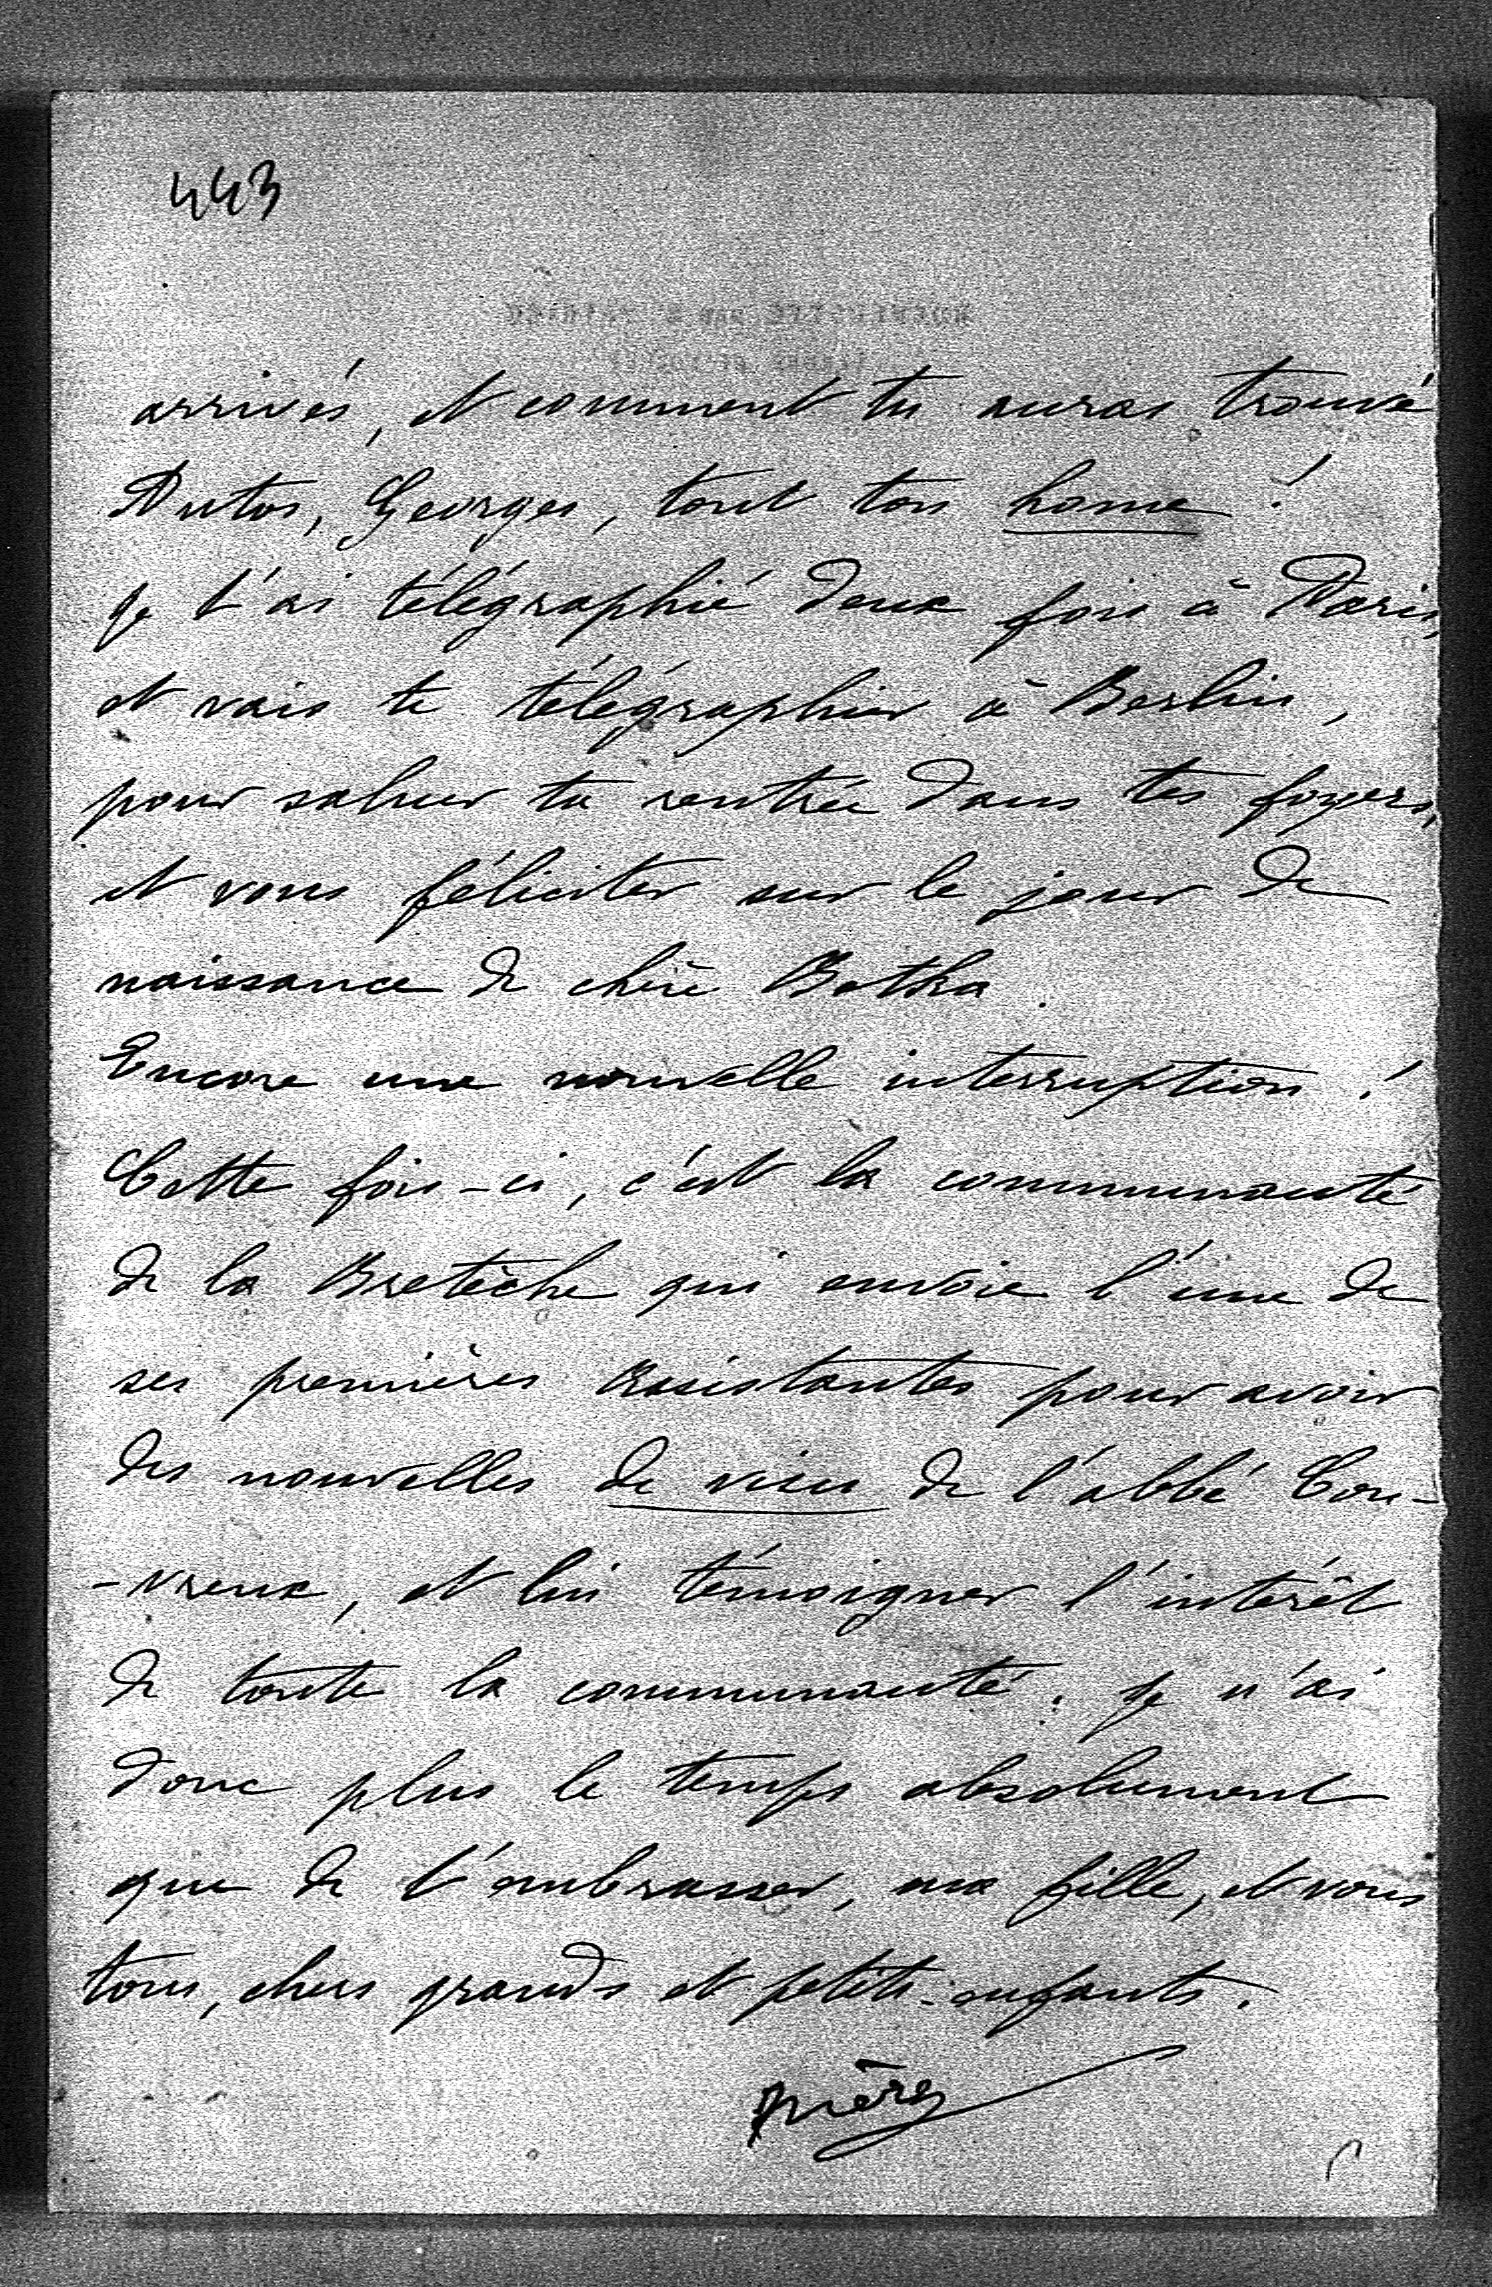 443
arrivés, et comment tu auras trouvé
Antos, Georges, tout ton home !
je t'ai télégraphié deux fois à Paris,
et vais te télégraphier à Berlin,
pour saluer ta rentrée dans tes foyers,
et vous féliciter sur le jour de
naissance de chère Bethka.
Encore une nouvelle interruption !
Cette fois-ci, c'est la communauté
de la Bretèche qui envoie l'une de
ses premières assistantes pour avoir
des nouvelles de visu de l'abbé Cou-
-vreux, et lui témoigner l'intérêt
de toute la communauté. je n'ai
donc plus le temps absolument
que de t'embrasser, ma fille, et vous
tous, chers grands et petits-enfants.
mère